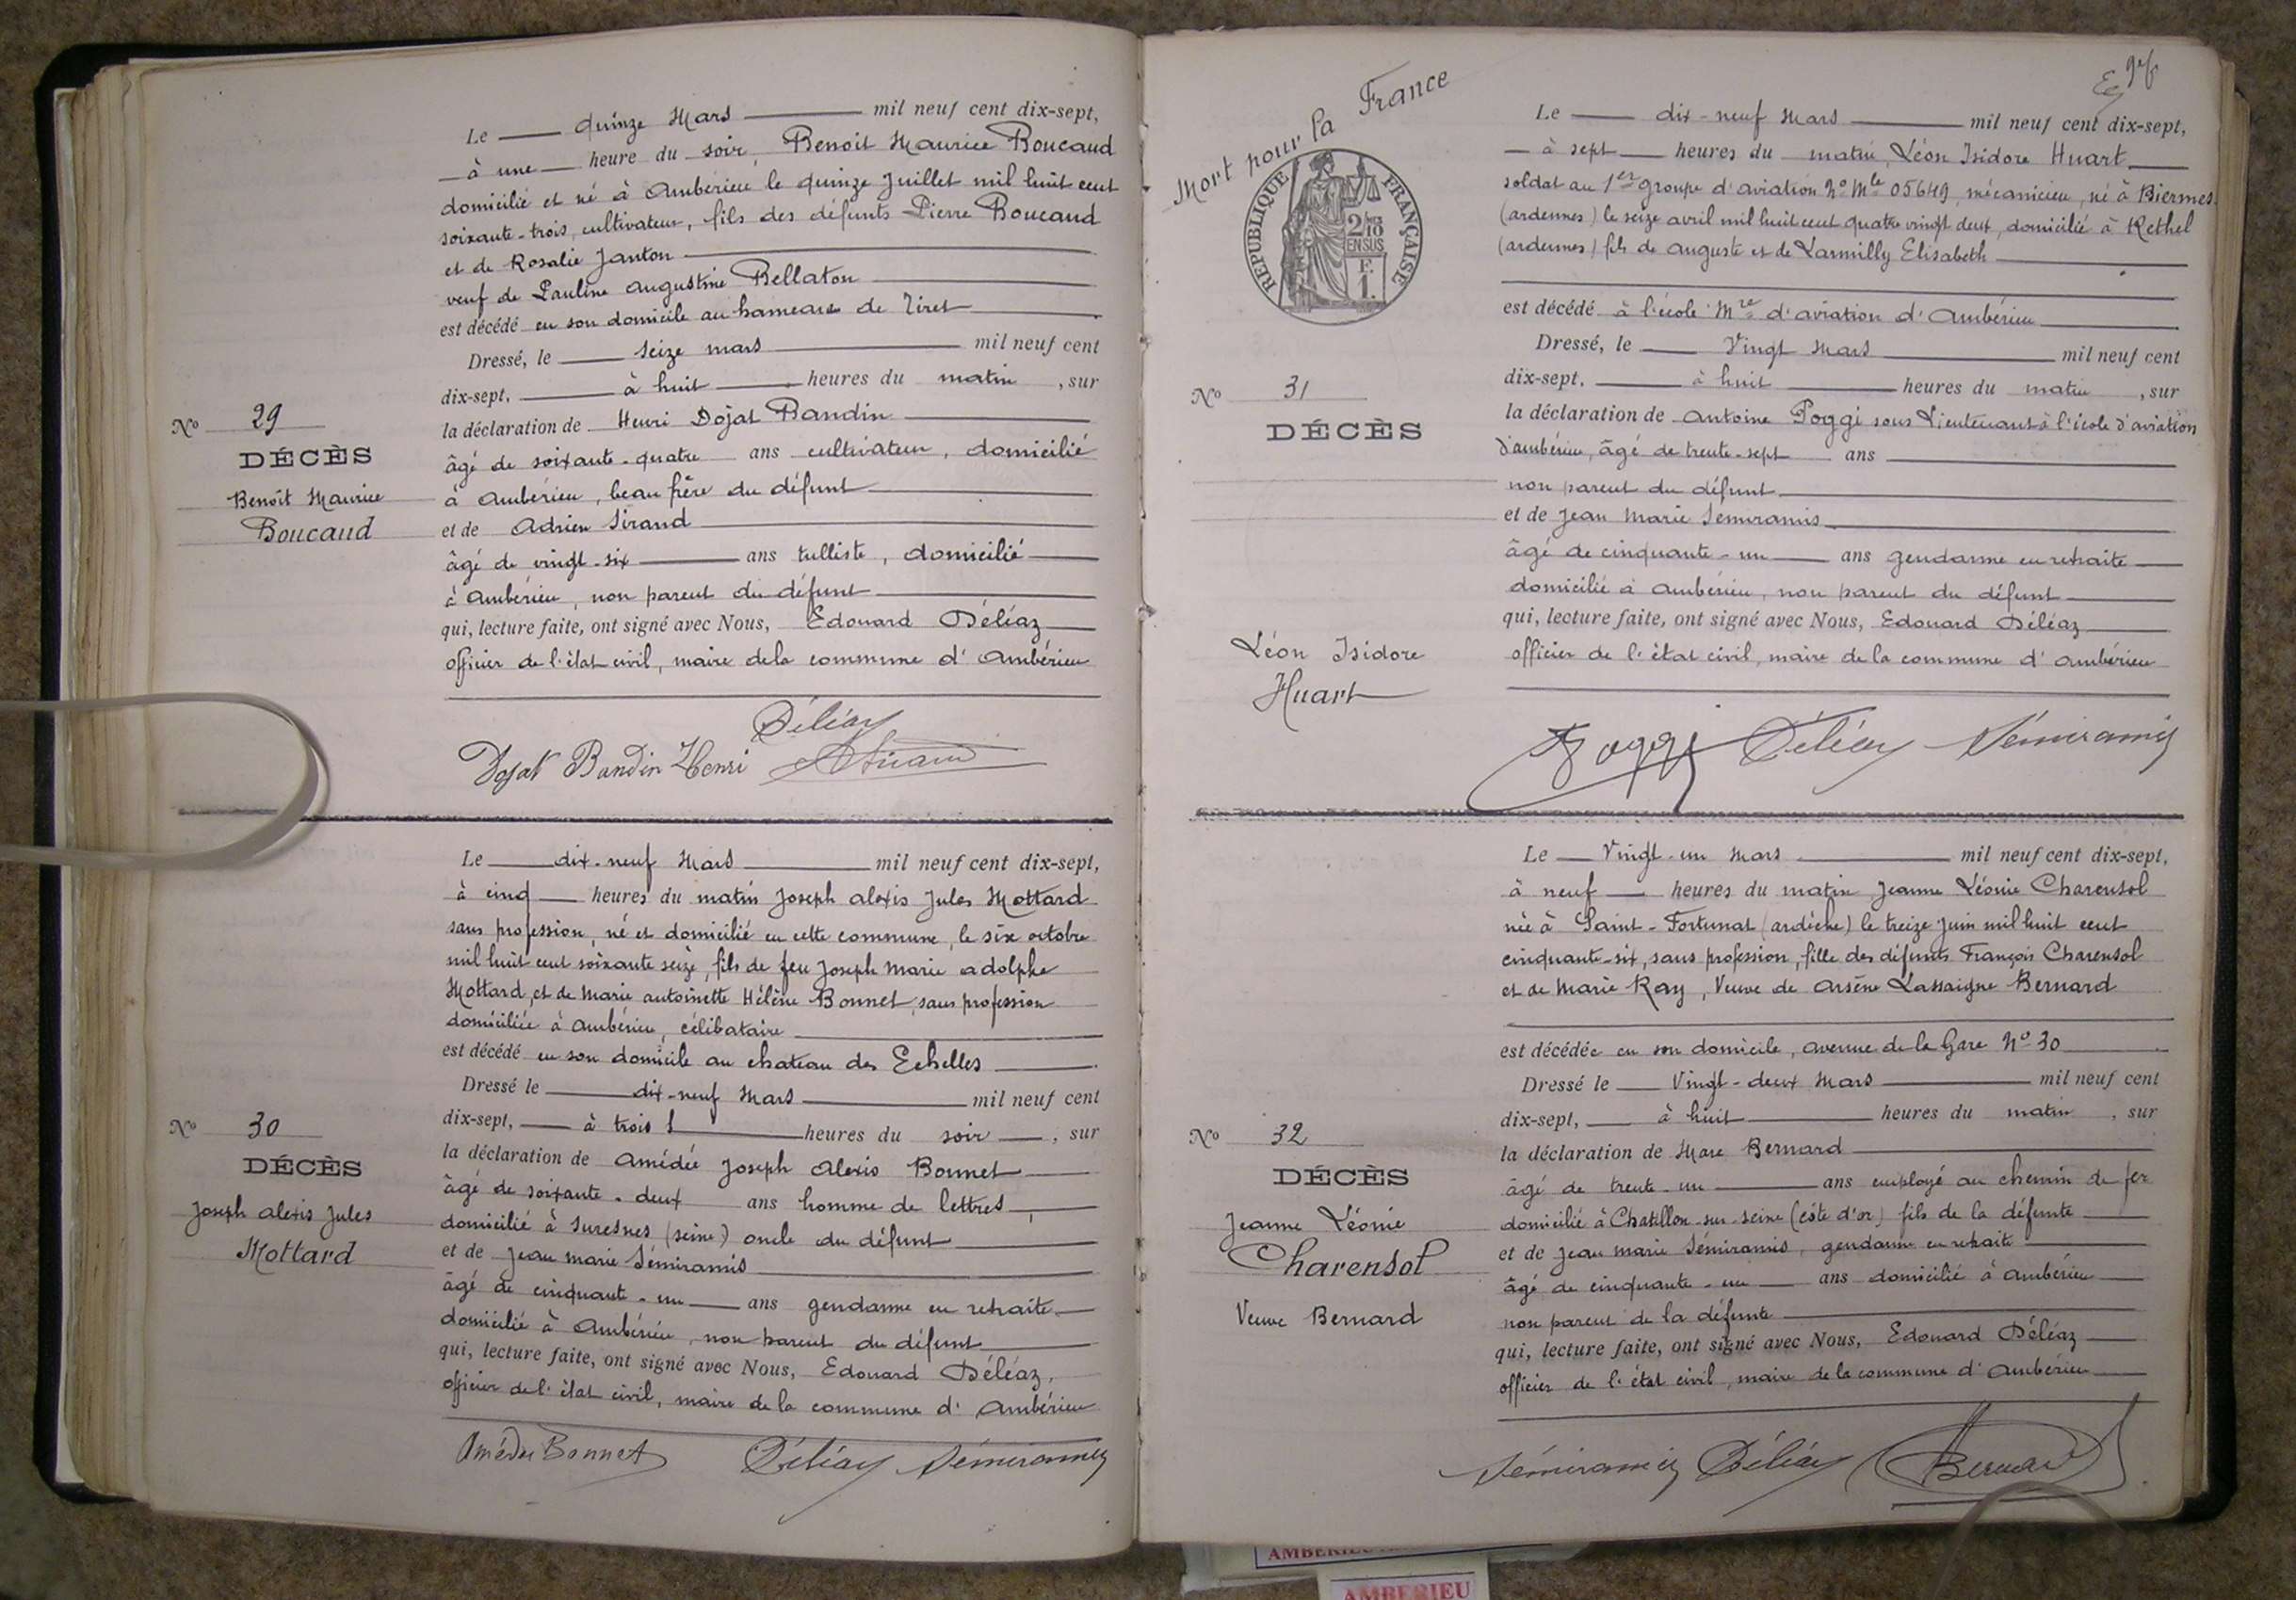 Le quinze Mars mil neuf cent dix-sept,
à une heure du soir, Benoit Maurice Boucaud
domicilié et né à Ambérieu le quinze Juillet mil huit cent
soixante-trois, cultivateur, fils des défunts Pierre Boucaud
et de Rosalie Janton
veuf de Pauline Augustine Bellaton
est décédé en son domicile au hameau de Tiret
Dressé, le seize mars mil neuf cent
dix-sept, à huit heures du matin, sur
la déclaration de Henri Dojat Bandin
âgé de soixante-quatre ans cultivateur, domicilié
à Ambérieu, beau frère du défunt
et de Adrien Sirand
âgé de vingt-six ans tulliste, domicilié
à Ambérieu, non parent du défunt
qui, lecture faite, ont signé avec Nous, Edouard Déléaz
officier de l'état civil, maire de la commune d'Ambérieu
Déléaz
Dojat Bandin Henri ASirand
No 29
DÉCÈS
Benoit Maurice
Boucaud
Le dix-neuf Mars mil neuf cent dix-sept,
à cinq heures du matin Joseph Alexis Jules Mottard
sans profession, né et domicilié en cette commune, le six octobre
mil huit cent soixante seize, fils de feu Joseph Marie Adolphe
Mottard, et de Marie Antoinette Hélène Bonnet, sans profession
domiciliée à Ambérieu, célibataire
est décédé en son domicile au chateau des Echelles
Dressé le dix-neuf Mars mil neuf cent
dix-sept, à trois heures du soir, sur
la déclaration de Amédée Joseph Alexis Bonnet
âgé de soixante-deux ans homme de lettres,
domicilié à Suresnes (Seine) oncle du défunt
et de Jean Marie Sémiramis
âgé de cinquante-un ans gendarme en retraite
domicilié à Ambérieu, non parent du défunt
qui, lecture faite, ont signé avec Nous, Edouard Déléaz,
officier de l'état civil, maire de la commune d'Ambérieu
Amédée Bonnet Déléaz Sémiramis
No 30
DÉCÈS
Joseph Alexis Jules
Mottard
Mort pour la France
RÉPUBLIQUE FRANÇAISE
2/10
EN SUS
F.
1.
Le dix-neuf Mars mil neuf cent dix-sept,
à sept heures du matin, Léon Isidore Huart
soldat au 1er groupe d'aviation No Mle 05649, mécanicien, né à Biermes
(Ardennes) le seize avril mil huit cent quatre vingt deux, domicilié à Rethel
(Ardennes) fils de Auguste et de Larmilly Elisabeth
est décédé à l'école Mre d'aviation d'Ambérieu
Dressé, le Vingt Mars mil neuf cent
dix-sept, à huit heures du matin, sur
la déclaration de Antoine Poggi sous Lieutenant à l'école d'aviation
d'Ambérieu, âgé de trente-sept ans
non parent du défunt
et de Jean Marie Semiramis
âgé de cinquante-un ans gendarme en retraite
domicilié à Ambérieu, non parent du défunt
qui, lecture faite, ont signé avec Nous, Edouard Déléaz
officier de l'état civil, maire de la commune d'Ambérieu
Poggi Déléaz Sémiramis
No 31
DÉCÈS
Léon Isidore
Huart
Le Vingt-un Mars mil neuf cent dix-sept,
à neuf heures du matin Jeanne Léonie Charensol
née à Saint-Fortunat (Ardèche) le treize Juin mil huit cent
cinquante-six, sans profession, fille des défunts François Charensol
et de Marie Ray, Veuve de Arsène Lassaigne Bernard
est décédée en son domicile, avenue de la Gare No 30
Dressé le Vingt-deux Mars mil neuf cent
dix-sept, à huit heures du matin, sur
la déclaration de Marc Bernard
âgé de trente-un ans employé au chemin de fer
domicilié à Chatillon-sur-Seine (Côte d'or) fils de la défunte
et de Jean Marie Sémiramis, gendarme en retraite
âgé de cinquante-un ans domicilié à Ambérieu
non parent de la défunte
qui, lecture faite, ont signé avec Nous, Edouard Déléaz
officier de l'état civil, maire de la commune d'Ambérieu
Sémiramis Déléaz Bernard
No 32
DÉCÈS
Jeanne Léonie
Charensol
Veuve Bernard
AMBERIEU